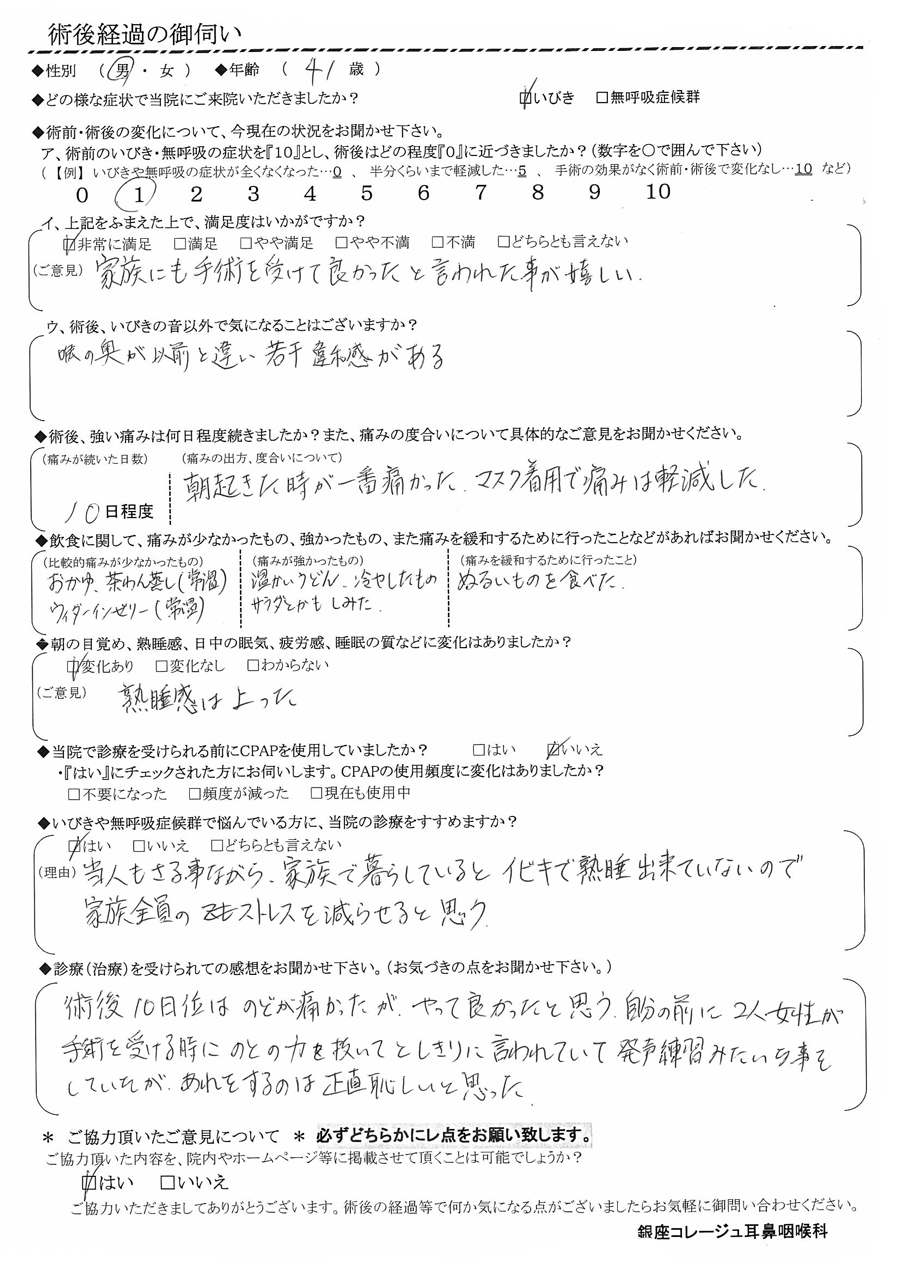 術後経過の御伺い
◆性別 （ 男 ・ 女 ） ◆年齢 （ 41 歳 ）
◆どの様な症状で当院にご来院いただきましたか？ ☑いびき □無呼吸症候群
◆術前・術後の変化について、今現在の状況をお聞かせ下さい。
ア、術前のいびき・無呼吸の症状を『10』とし、術後はどの程度『0』に近づきましたか？（数字を○で囲んで下さい）
（【例】いびきや無呼吸の症状が全くなくなった…0 、 半分くらいまで軽減した…5 、 手術の効果がなく術前・術後で変化なし…10 など）
0 1 2 3 4 5 6 7 8 9 10
イ、上記をふまえた上で、満足度はいかがですか？
☑非常に満足 □満足 □やや満足 □やや不満 □不満 □どちらとも言えない
（ご意見） 家族にも手術を受けて良かったと言われた事が嬉しい.
ウ、術後、いびきの音以外で気になることはございますか？
喉の奥が以前と違い若干違和感がある
◆術後、強い痛みは何日程度続きましたか？また、痛みの度合いについて具体的なご意見をお聞かせください。
（痛みが続いた日数） （痛みの出方、度合いについて）
朝起きた時が一番痛かった. マスク着用で痛みは軽減した.
10日程度
◆飲食に関して、痛みが少なかったもの、強かったもの、また痛みを緩和するために行ったことなどがあればお聞かせください。
（比較的痛みが少なかったもの） （痛みが強かったもの） （痛みを緩和するために行ったこと）
おかゆ、茶わん蒸し(常温) 温かいうどん、冷やしたもの ぬるいものを食べた.
ウィダーインゼリー(常温) サラダとかもしみた.
◆朝の目覚め、熟睡感、日中の眠気、疲労感、睡眠の質などに変化はありましたか？
☑変化あり □変化なし □わからない
（ご意見） 熟睡感は上った
◆当院で診療を受けられる前にCPAPを使用していましたか？ □はい ☑いいえ
・『はい』にチェックされた方にお伺いします。CPAPの使用頻度に変化はありましたか？
□不要になった □頻度が減った □現在も使用中
◆いびきや無呼吸症候群で悩んでいる方に、当院の診療をすすめますか？
☑はい □いいえ □どちらとも言えない
（理由） 当人もさる事ながら、家族で暮らしているとイビキで熟睡出来ていないので
家族全員のストレスを減らせると思う.
◆診療（治療）を受けられての感想をお聞かせ下さい。（お気づきの点をお聞かせ下さい。）
術後10日位はのどが痛かったが、やって良かったと思う. 自分の前に2人女性が
手術を受ける時にのどの力を抜いてとしきりに言われていて発声練習みたいな事を
していたが、あれをするのは正直恥しいと思った.
＊ ご協力頂いたご意見について ＊ 必ずどちらかにレ点をお願い致します。
ご協力頂いた内容を、院内やホームページ等に掲載させて頂くことは可能でしょうか？
☑はい □いいえ
ご協力いただきましてありがとうございます。術後の経過等で何か気になる点がございましたらお気軽に御問い合わせください。
銀座コレージュ耳鼻咽喉科